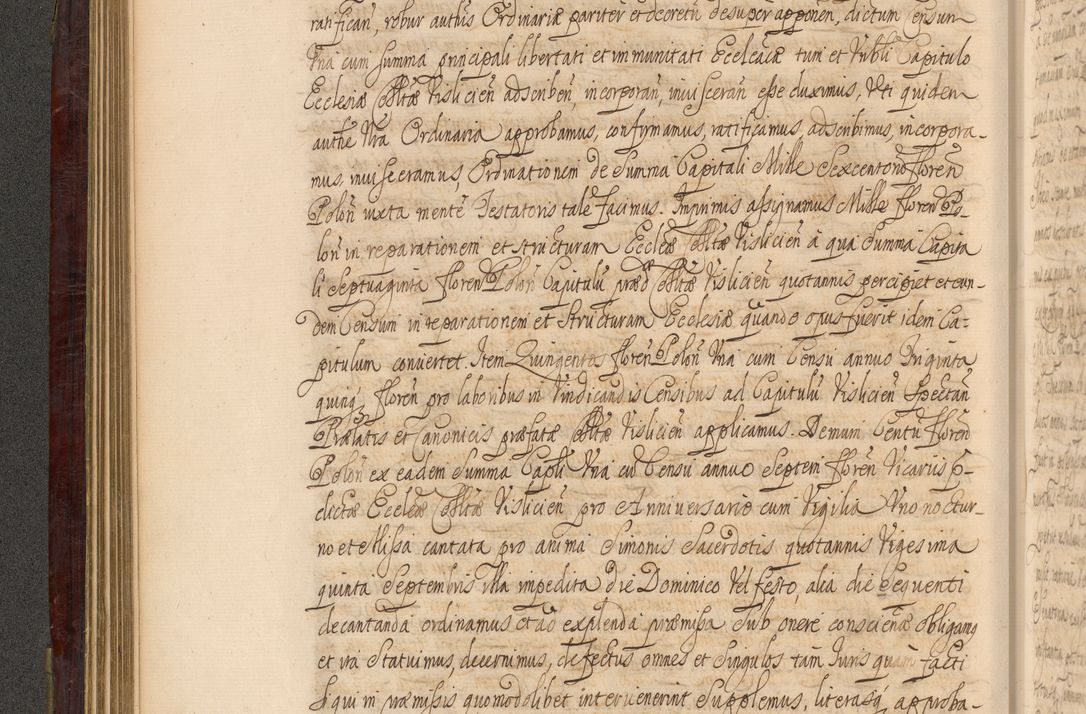 ratifican̄, robur authīs Ordinariæ pariter et decretū desuper apponen̄, dictum Censum
Vna cum summa principali libertati et immunitati Eccleācæ tum et Vnbli Capitulo
Ecclesiæ Colltæ Vislicien̄ adscriben̄, incorporan̄, inuisceran̄ esse duximus, Vti quidem
authē Nrā Ordinaria approbamus, confirmamus, ratificamus, adscribimus, incorpora-
mus, inuisceramus, Ordinationem de Summa Capitali Mille Sexcentorū floren̄
Polon̄ iuxta mentē Testatoris tale facimus. Inprimis assignamus Mille floren̄ Po-
lon̄ in reparationem et structuram Eccleæ Colltæ Vislicien̄ à qua Summa Capita
li Septuaginta floren̄ Polon̄ Capitulū præd Colltæ Vislicien̄ quotannis percipiet et eun-
dem Censum in reparationem et Structuram Ecclesiæ quando opus fuerit idem Ca-
pitulum conuertet. Item Quingentos floren̄ Polon̄ Vna cum Censu annuo Triginta
quinq, floren̄ pro laboribus in Vindicandis Censibus ad Capitulū Vislicien̄ Spectan̄
Prælatis et Canonicis præfatæ Colltæ Vislicien̄ applicamus. Demum Centū floren̄
Polon̄ ex eadem Summa Capli Vna cū Censu annuo Septem floren̄ Vicariis p-
dictæ Eccleæ Colltæ Vislicien̄ pro Anniuersario cum Vigilia Vno noctur-
no et Missa cantata pro anima Simonis Sacerdotis quotannis Vigesima
quinta Septembris illa impedita die Dominico Vel festo, alia die sequenti
decantanda ordinamus et ad explenda præmissa sub onere conscienæ obligamg
et ita Statuimus, decernimus, defectus omnes et Singulos tam Iuris quam facti
Siqui in præmissis quomodolibet interuenerint Supplemus, literasq, approba-